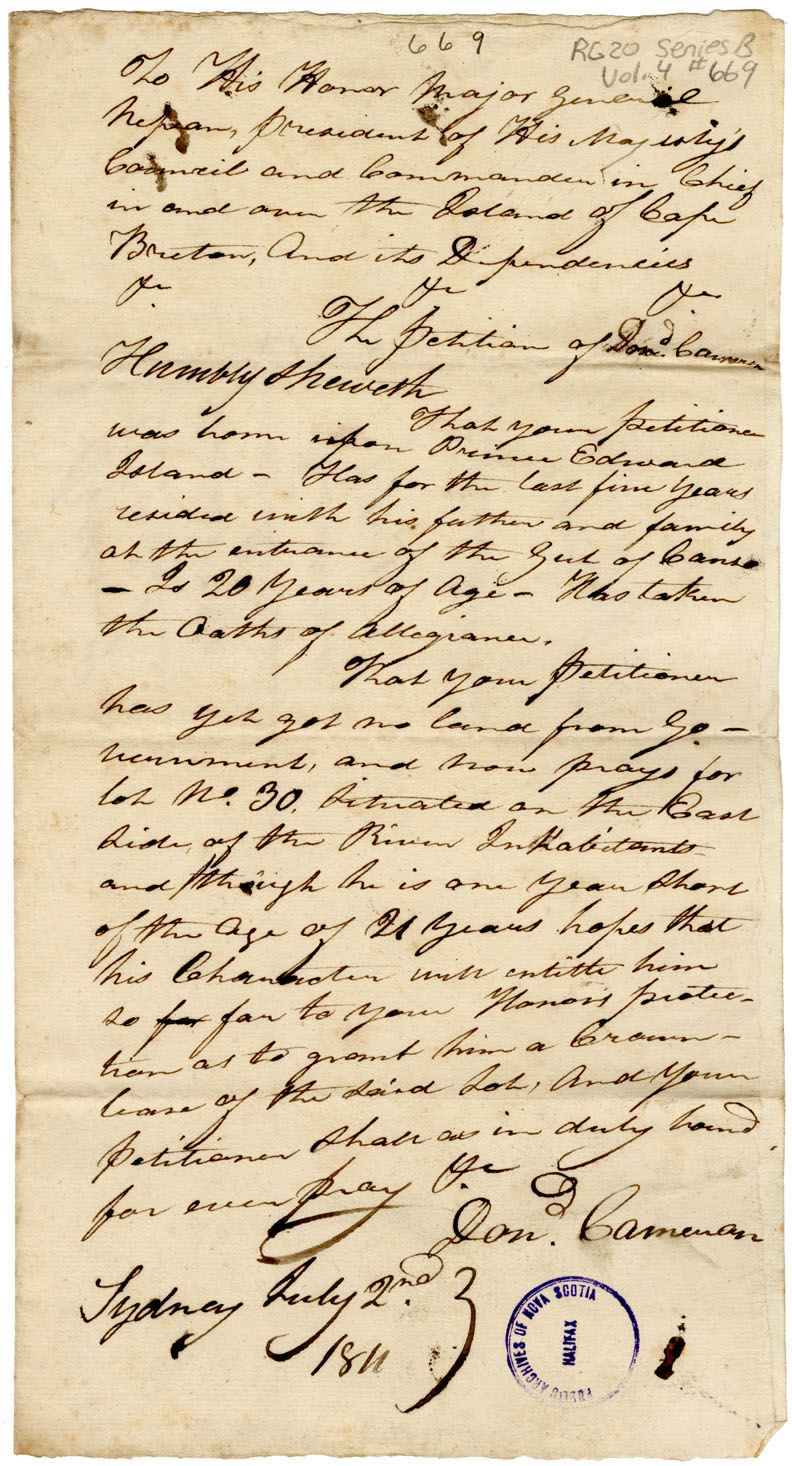 669
RG20 Series B
Vol. 4 #669
To His Honor Major General
Nepean, president of His Majesty's
Council and Commander in Chief
in and over the Island of Cape
Breton, And its Dependencies
&c &c &c
The petition of Dond. Cameron
Humbly Sheweth
That your petitioner
was born upon Prince Edward
Island – Has for the last five years
resided with his father and family
at the entrance of the Gut of Canso
– Is 20 Years of Age – Has taken
the Oaths of Allegiance.
That your petitioner
has yet got no land from Go –
vernment, and now prays for
lot No. 30. Situated on the East
side of the River Inhabitants
and though he is one year short
of the Age of 21 Years hopes that
his Character will entitle him
so far far to your Honors protec –
tion as to grant him a Crown –
lease of the said Lot, And Your
petitioner shall as in duty bound
for ever pray &c
Dond. Cameron
Sydney July 2nd.
1811
PUBLIC ARCHIVES OF NOVA SCOTIA
HALIFAX